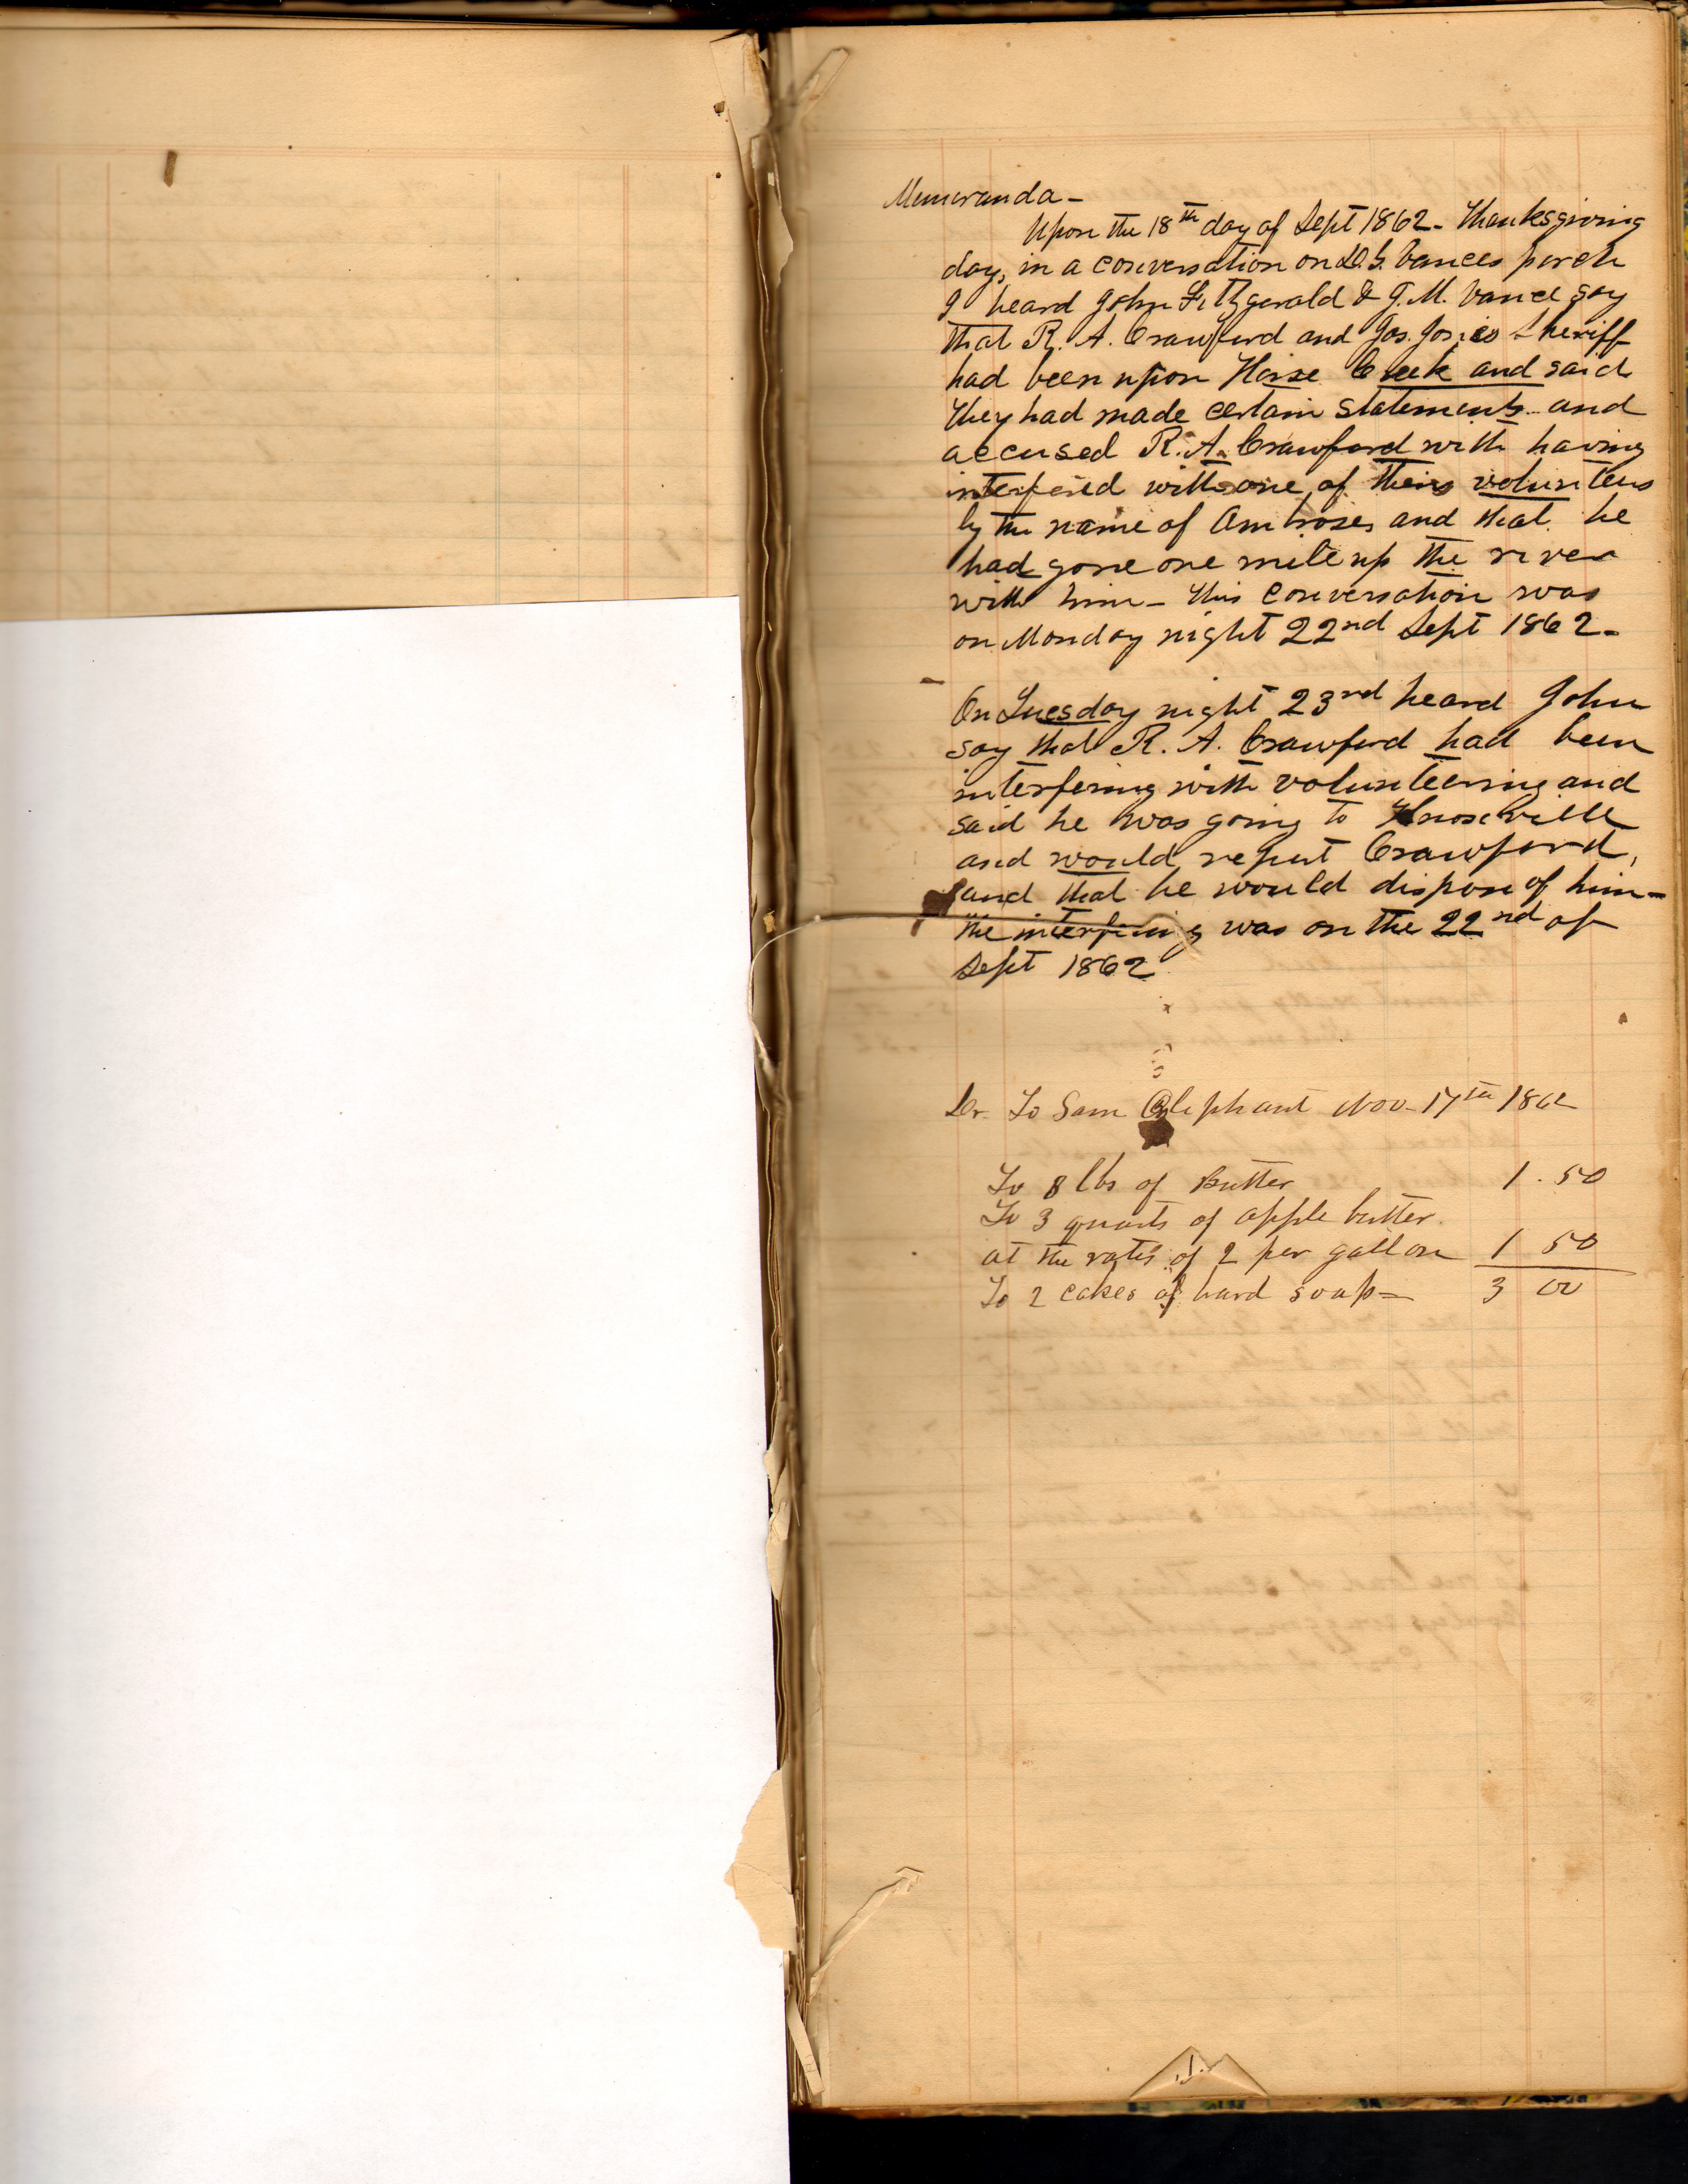 Memoranda -
Upon the 18th day of Sept 1862 - Thanksgiving
day, in a conversation on D. S. Vances porch
I heard John Fitzgerald & J. M. Vance say
that R. A. Crawford and Jas. Jones Sheriff
had been upon Horse Creek and said
they had made certain statements and
accused R. A. Crawford with having
interfered with one of theirs volunteers
by the name of Ambrose, and that he
had gone one mile up the river
with him - this conversation was
on Monday night 22nd Sept 1862 -
On Tuesday night 23rd heard John
say that R. A. Crawford had been
interfering with volunteering and
said he was going to Knoxville
and would report Crawford,
and that he would dispose of him -
the interfering was on the 22nd of
Sept 1862
Dr. To Sam Oliphant Nov. 17th 1862
To 8 lbs of Butter 1.50
To 3 quarts of apple butter
at the rates of 2 per gallon 1 50
To 2 cakes of hard soap - 3 00